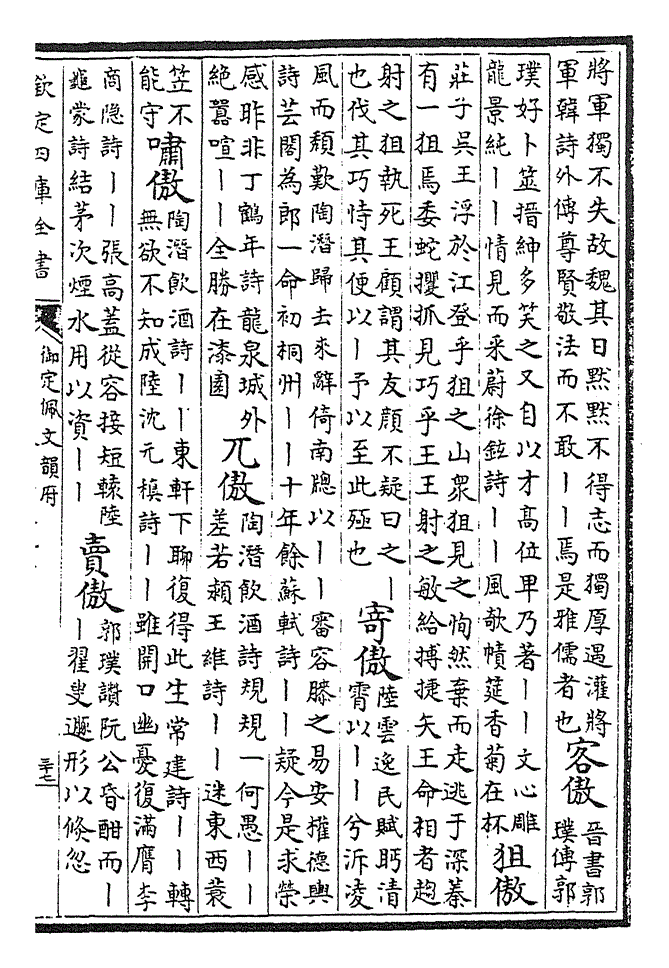 將軍獨不失故魏其日黙黙不得志而獨厚遇灌將
軍韓詩外傳尊賢敬法而不敢丨丨焉是雅儒者也
客傲
晉書郭
璞傳郭
璞好卜筮搢紳多笑之又自以才髙位卑乃著丨丨文心雕
龍景純丨丨情見而采蔚徐鉉詩丨丨風欹幘筵香菊在杯
狙傲
莊子吳王浮於江登乎狙之山衆狙見之恂然棄而走逃于深蓁
有一狙焉委蛇攫抓見巧乎王王射之敏給搏捷矢王命相者趨
射之狙執死王顧謂其友顔不疑曰之丨
也伐其巧恃其便以丨予以至此殛也
寄傲
陸雲逸民賦眄清
霄以丨丨兮泝凌
風而頽歎陶潛歸去來辭倚南牕以丨丨審容膝之易安權德輿
詩芸閣為郎一命初桐州丨丨十年餘蘇軾詩丨丨疑今是求榮
感昨非丁鶴年詩龍泉城外
絶囂喧丨丨全勝在漆園
兀傲
陶潛飲酒詩規規一何愚丨丨
差若穎王維詩丨丨迷東西蓑
笠不
能守
嘯傲
陶潛飲酒詩丨丨東軒下聊復得此生常建詩丨丨轉
無欲不知成陸沈元稹詩丨丨雖開口幽憂復滿膺李
商隐詩丨丨張髙蓋從容接短轅陸
龜蒙詩結茅次煙水用以資丨丨
賣傲
郭璞讃阮公昏酣而丨
丨翟叟遯形以倐忽
欽定四庫全書
御定佩文韻府
三十二